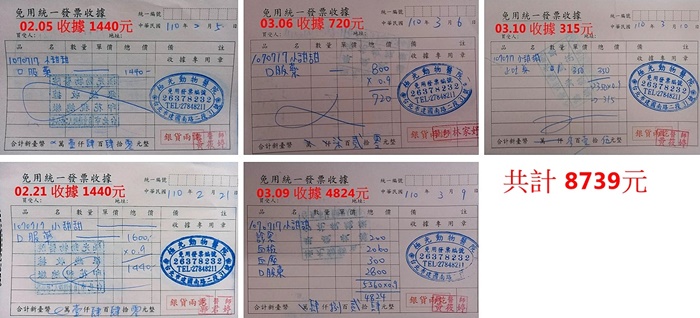 免用統一發票收據
02.05 收據 1440元
統一編號
中華民國 110 年 2 月 5 日
買受人: 地址:
品名 數量 單價 總價 備註
收據專用章
1070717 小甜甜
口服藥 1440
楊光動物醫院
免用發票編號
26378232
TEL:27848211
合計新臺幣 萬壹仟肆佰肆拾零元整
銀貨兩訖
免用統一發票收據
03.06 收據 720元
統一編號
中華民國 110 年 3 月 6 日
買受人: 地址:
品名 數量 單價 總價 備註
收據專用章
1070717 小甜甜
口服藥 800
x 0.9
720
楊光動物醫院
免用發票編號
26378232
TEL:27848211
合計新臺幣 萬 仟柒佰貳拾零元整
銀貨兩訖
免用統一發票收據
03.10 收據 315元
統一編號
中華民國 110 年 3 月 10 日
品名 數量 單價 總價 備註
收據專用章
350
315
免用發票編號
26378232
TEL:27848211
合計新臺幣
銀貨兩訖
免用統一發票收據
02.21 收據 1440元
統一編號
中華民國 110 年 2 月 21 日
買受人: 地址:
品名 數量 單價 總價 備註
收據專用章
1070717 小甜甜
口服藥 1600
x 0.9
1440
楊光動物醫院
免用發票編號
26378232
TEL:27848211
合計新臺幣 萬壹仟肆佰肆拾零元整
銀貨兩訖
免用統一發票收據
03.09 收據 4824元
統一編號
中華民國 110 年 3 月 9 日
買受人: 地址:
品名 數量 單價 總價 備註
收據專用章
1070717 小甜甜
200
2060
300
口服藥 2800
5360x0.9
4824
楊光動物醫院
免用發票編號
26378232
TEL:27848211
合計新臺幣 萬肆仟捌佰貳拾肆元整
銀貨兩訖
共計 8739元